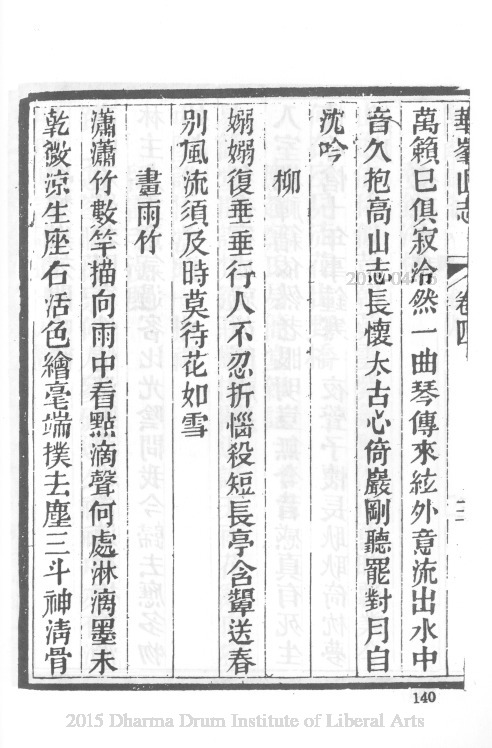 華峯山志 卷四 三
萬籟已俱寂泠然一曲琴傳來絃外意流出水中
音久抱高山志長懷太古心倚巖剛聽罷對月自
沈吟
柳
嫋嫋復垂垂行人不忍折惱殺短長亭含顰送春
别風流須及時莫待花如雪
畫雨竹
瀟瀟竹數竿描向雨中看點滴聲何處淋漓墨未
乾微涼生座右活色繪毫端撲去塵三斗神清骨
140
2015 Dharma Drum Institute of Liberal Arts